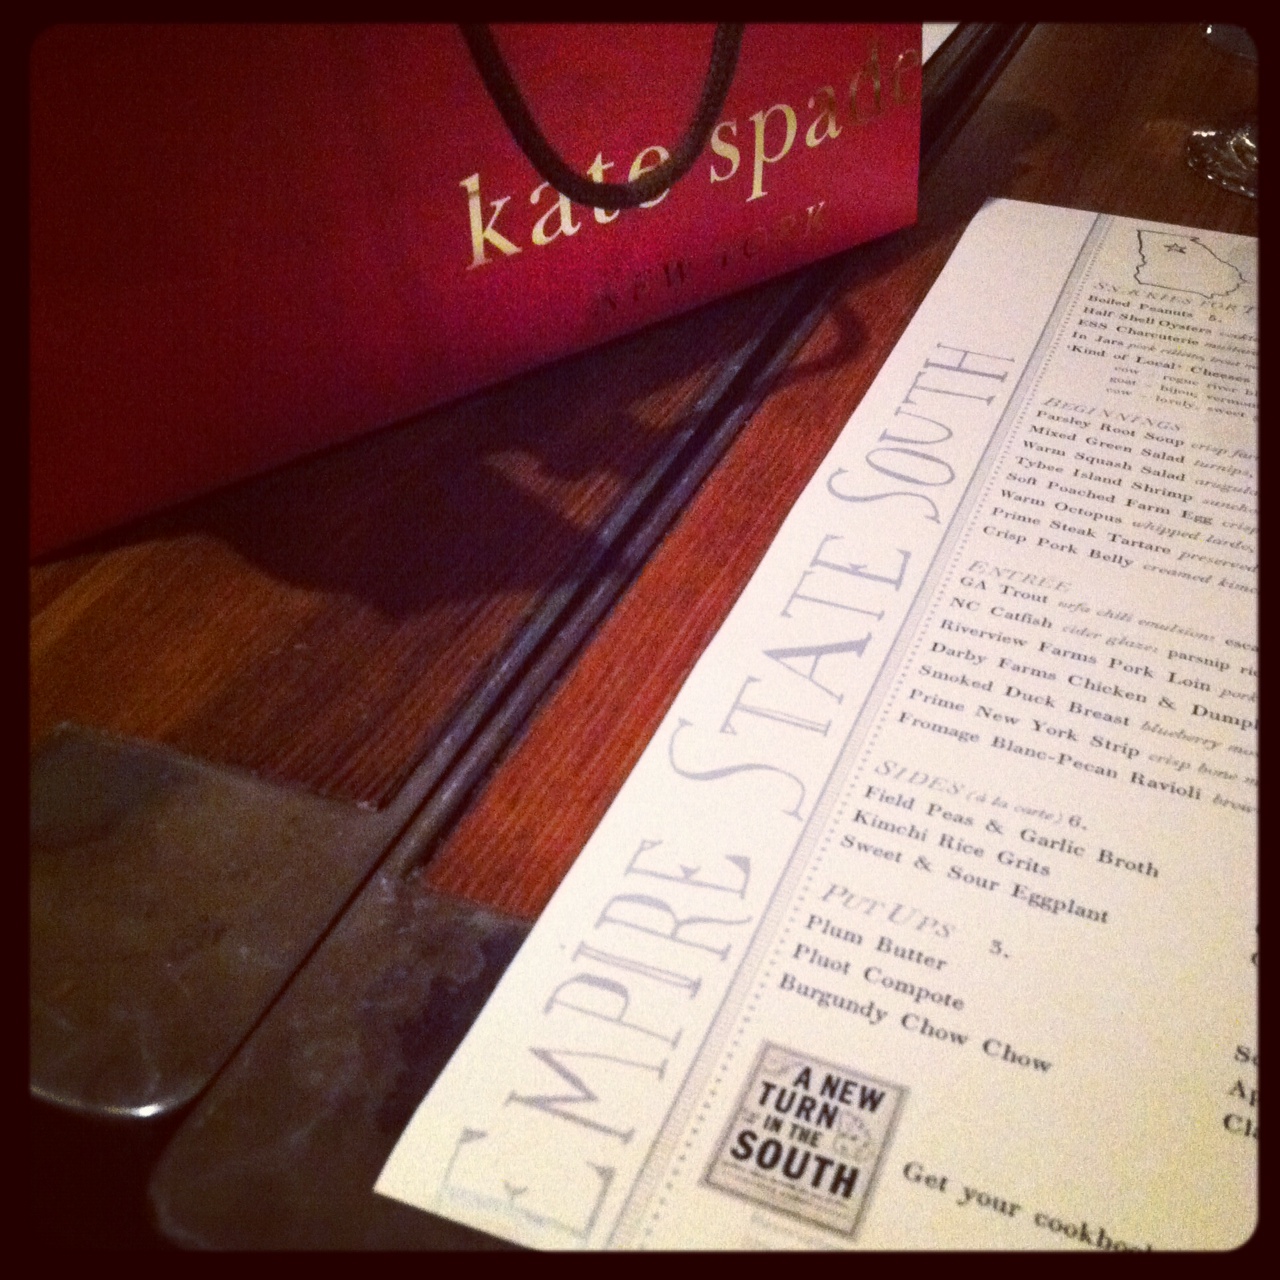 kate spade
NEW YORK
EMPIRE STATE SOUTH
Boiled Peanuts 5.
Half Shell Oysters
ESS Charcuterie
In Jars pork rillons,
Kind of Local Cheeses
cow - rogue river
goat - bijou, vermont
cow - lovely, sweet
BEGINNINGS
Parsley Root Soup crisp
Mixed Green Salad turnips,
Warm Squash Salad arugula
Tybee Island Shrimp
Soft Poached Farm Egg
Warm Octopus whipped lardo,
Prime Steak Tartare preserved
Crisp Pork Belly creamed
ENTREE
GA Trout urfa chili emulsion:
NC Catfish cider glaze: parsnip
Riverview Farms Pork Loin
Darby Farms Chicken &
Smoked Duck Breast blueberry
Prime New York Strip crisp bone
Fromage Blanc-Pecan Ravioli
SIDES (à la carte) 6.
Field Peas & Garlic Broth
Kimchi Rice Grits
Sweet & Sour Eggplant
PUT UPS 3.
Plum Butter
Pluot Compote
Burgundy Chow Chow
A NEW
TURN
IN THE
SOUTH
Get your